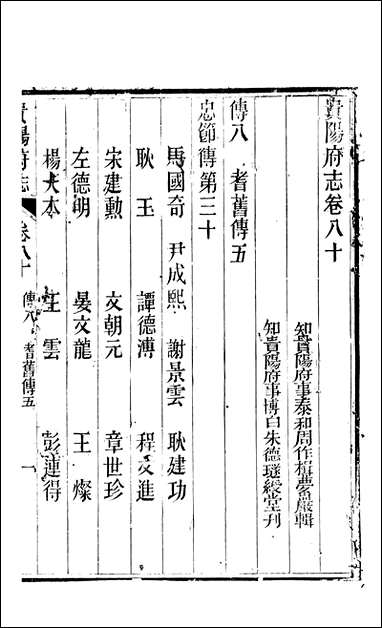 貴陽府志卷八十
知貴陽府事泰和周作楫夢巖輯
知貴陽府事博白朱德璲綬堂刋
傳八　耆舊傳五
忠節傳第三十
馬國奇　尹成熙　謝景雲　耿建功
耿玉　譚德溥　程文進
宋建勳　文朝元　章世珍
左德明　晏文龍　王燦
楊大本　王雲　彭連得
貴陽府志　卷八十　傳八　耆舊傳五　一